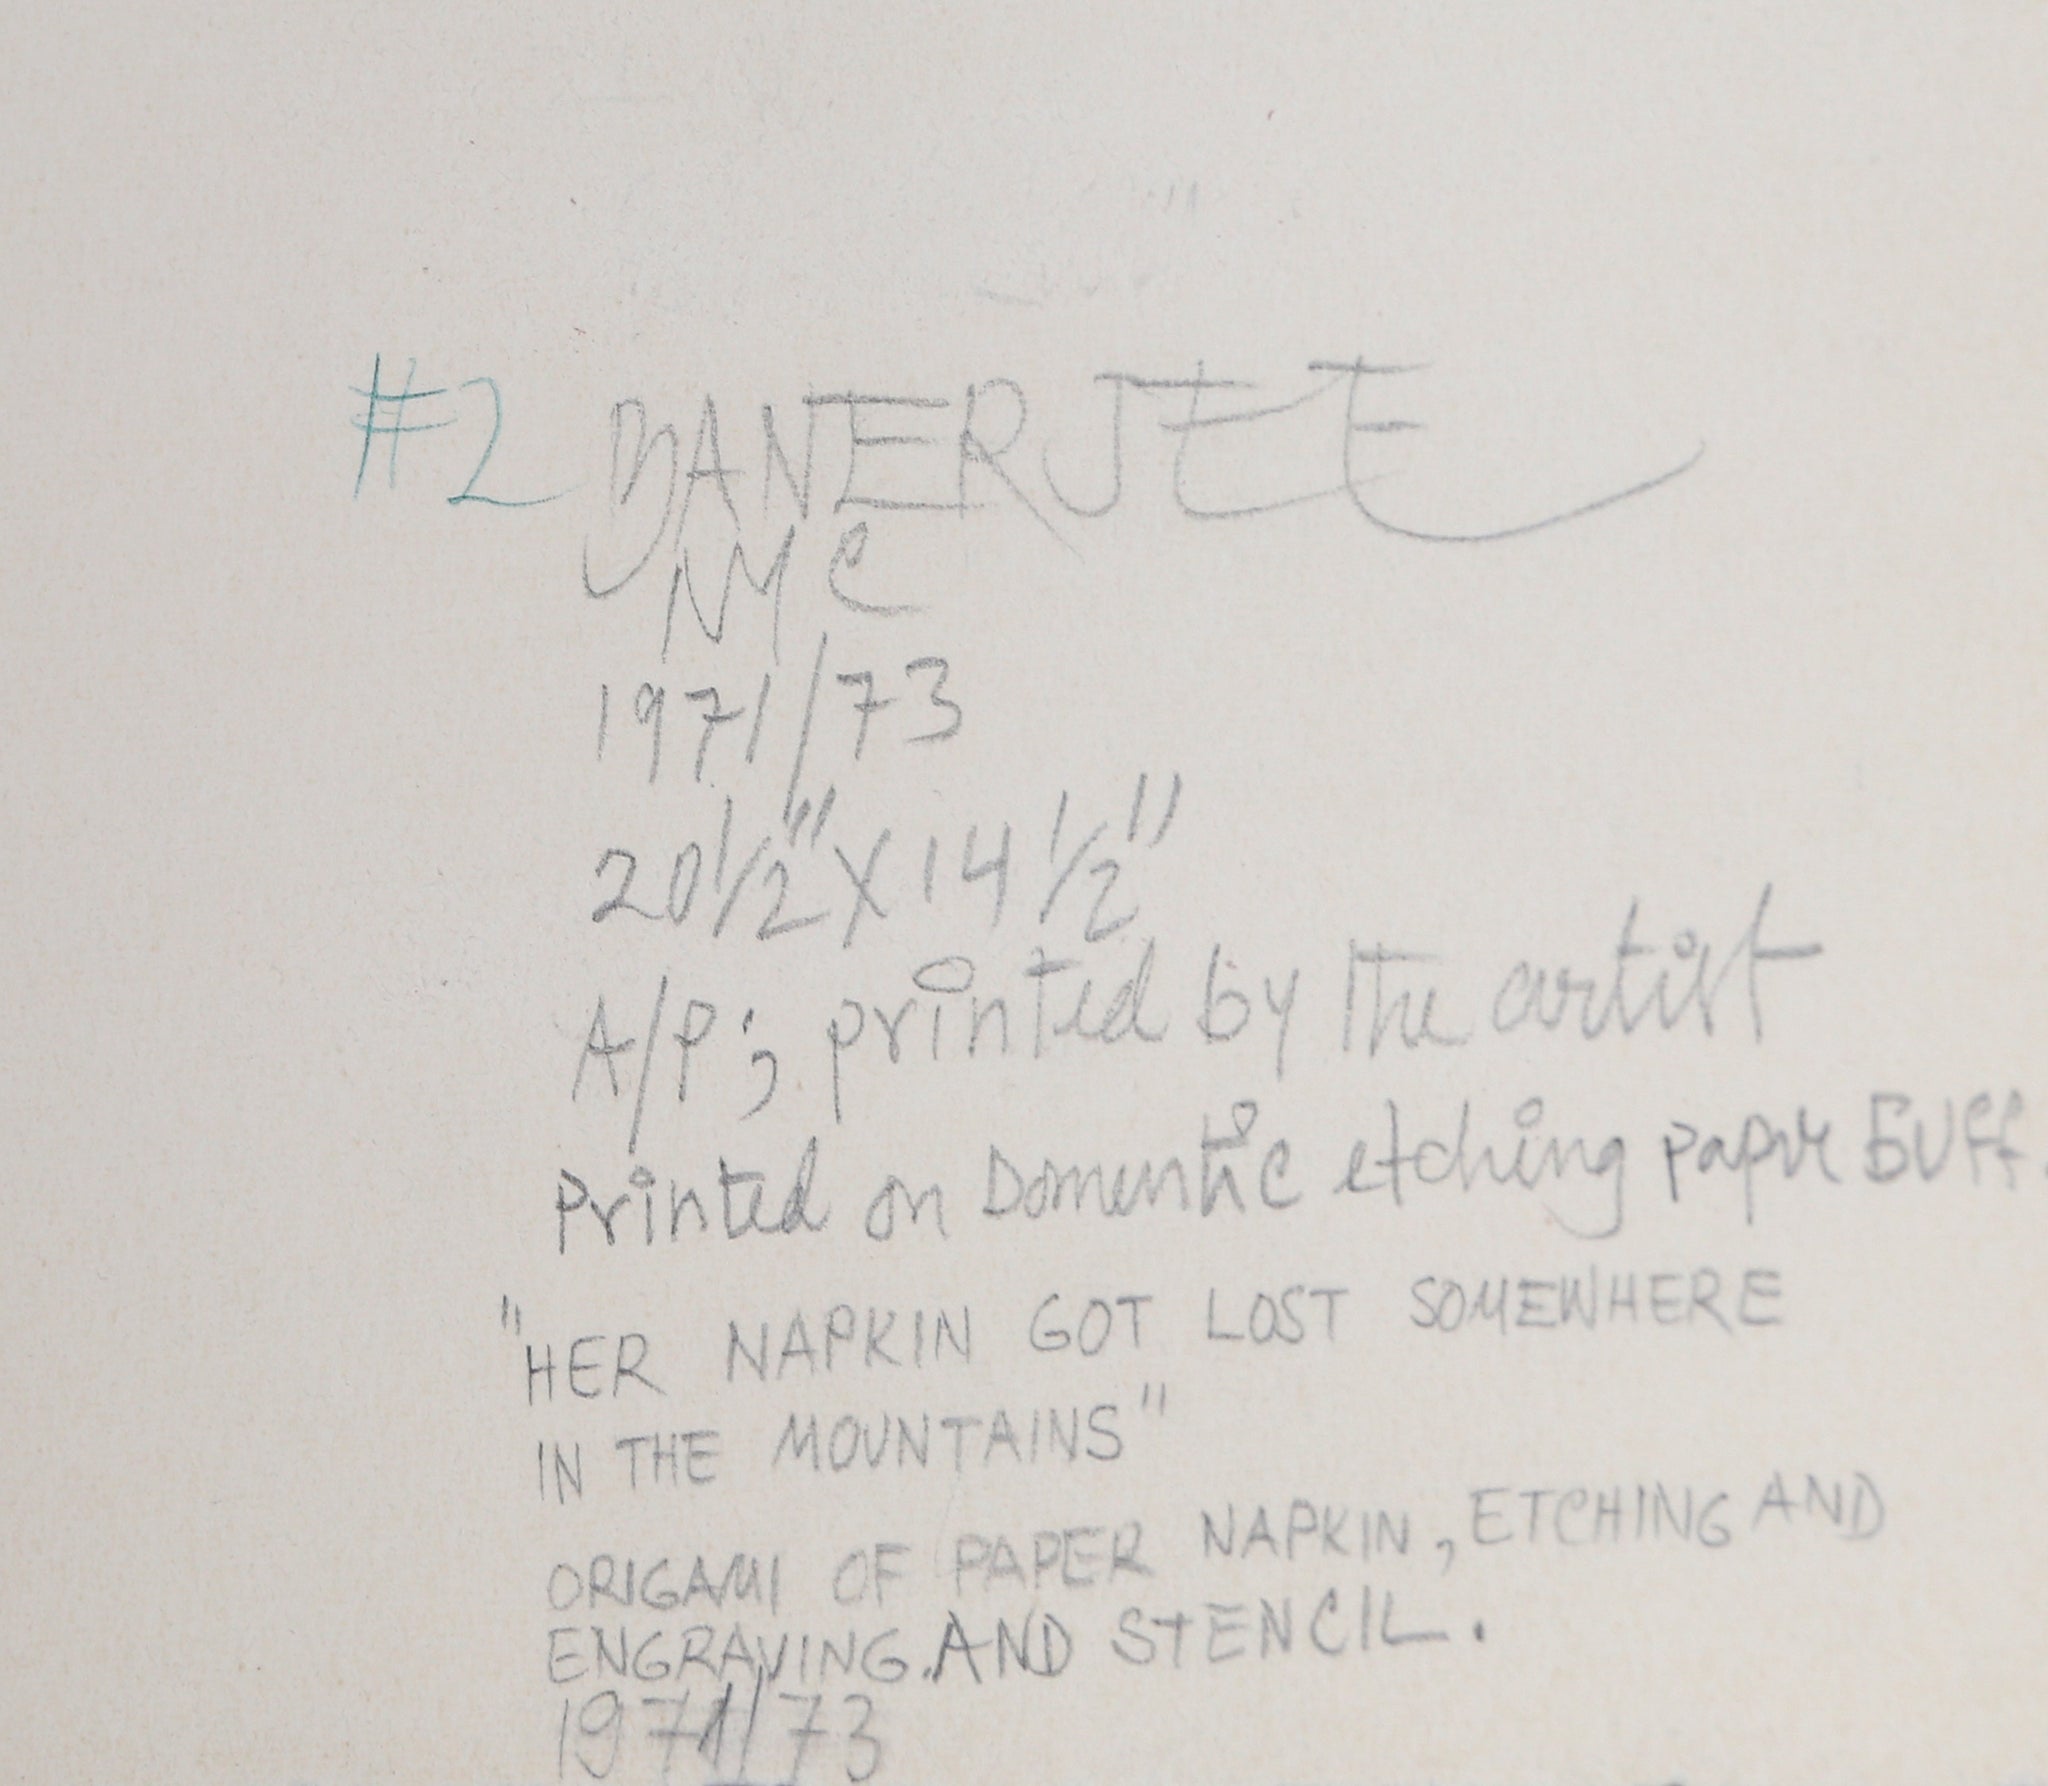 #2 BANERJEE
NYC
1971/73
20 1/2" X 14 1/2"
A/P; printed by the artist
Printed on Domentic etching paper BUFF.
"HER NAPKIN GOT LOST SOMEWHERE
IN THE MOUNTAINS"
ORIGAMI OF PAPER NAPKIN, ETCHING AND
ENGRAVING. AND STENCIL.
1971/73